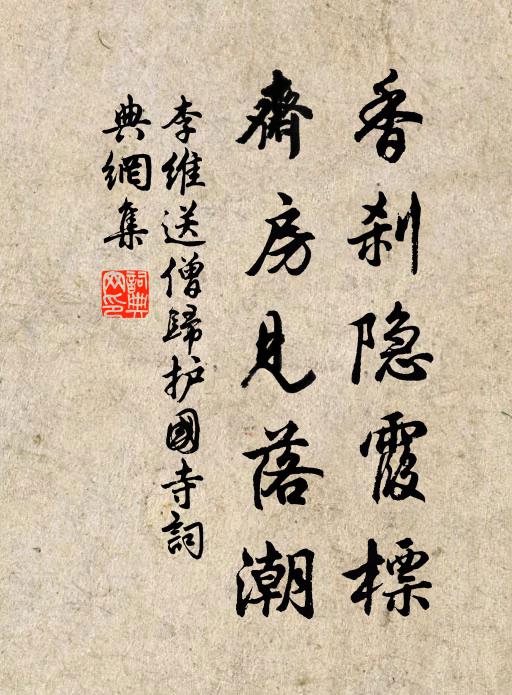 香刹隐霞標
齋房見落潮
李維送僧歸护國寺詞
典網集
詞典网印